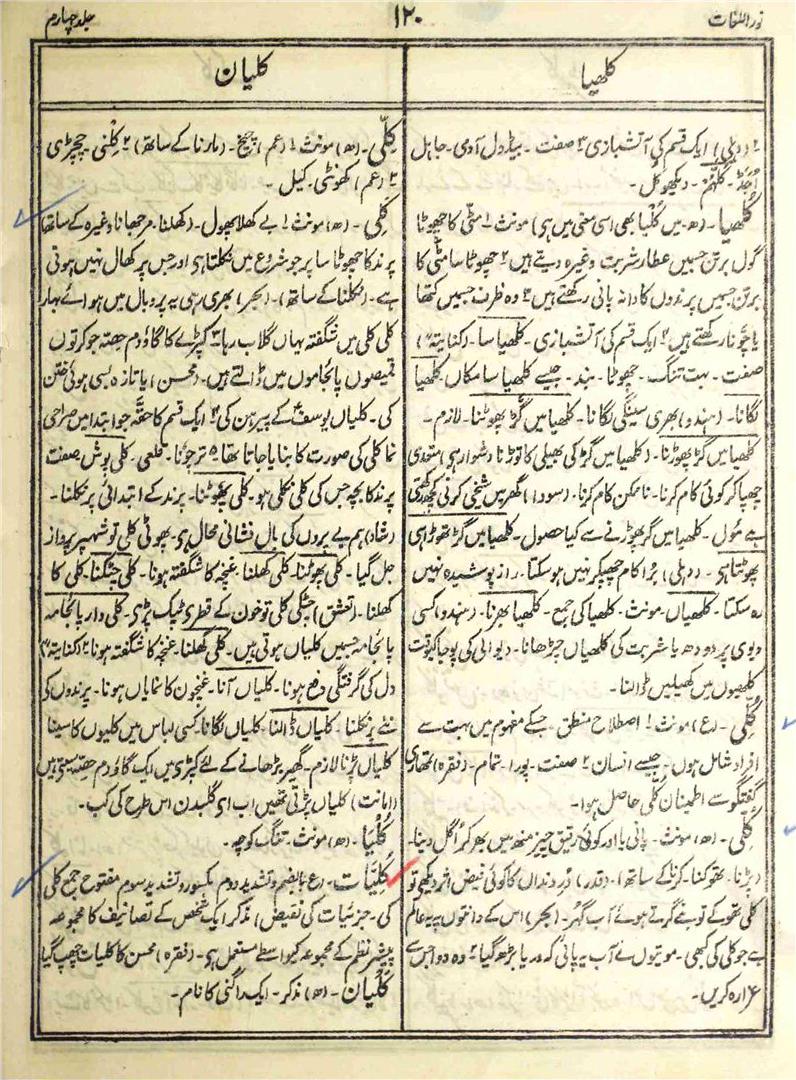 نور اللغات
۱۲۰
جلد چہارم
کلھیا
کلیان
۲ (دہلی) ایک قسم کی آتشبازی ۳ صفت۔ بیڈول آدمی۔ جاہل
اُجڈ۔ گلہن۔ دیکھو کل۔
کُلھیا۔ (ھ۔ میں کُلْہا بھی اسی معنی میں ہی) مونث ۱ مٹّی کا چھوٹا
گول برتن جسمیں عطار شربت وغیرہ دیتے ہیں ۲ چھوٹا سا مٹّی کا
برتن جسمیں پرندوں کا دانہ پانی رکھتے ہیں ۳ وہ ظرف جسمیں کتھا
یا چونا رکھتے ہیں ۴ ایک قسم کی آتشبازی۔ کلھیا سا۔ (کنایتہً)
صفت۔ بہت تنگ۔ چھوٹا۔ بند۔ جیسے کلھیا سا مکاں۔ کلھیا
لگانا۔ (ہندو) بھری سینگی لگانا۔ کلھیا میں گُڑ پھوٹنا۔ لازم۔
کلھیا میں گڑ پھوڑنا۔ (کلھیا میں گڑ کی بھیلی کا توڑنا دشوار ہی) متعدی
چھپا کر کوئی کام کرنا۔ ناممکن کام کرنا۔ (سودا) گھر میں شیخی کرنی کچھ
بے مول۔ کلھیا میں گڑ پھوڑنے سے کیا حصول۔ کلھیا میں گڑ تھوڑا ہی
پھوٹتا ہی۔ (دہلی) بڑا کام چھپکر نہیں ہو سکتا۔ راز پوشیدہ نہیں
رہ سکتا۔ کلھیاں۔ مونث۔ کلھیا کی جمع۔ کلھیا بھرنا۔ (ہندو) کسی
دیوی پر دودھ یا شربت کی کلھیاں چڑھانا۔ دیوالی کی پوجا کیوقت
کلھیوں میں کھیلیں ڈالنا۔
کُلّی۔ (ع) مونث ۱ اصطلاح منطق۔ جسکے مفہوم میں بہت سے
افراد شامل ہوں۔ جیسے انسان ۲ صفت۔ پورا۔ تمام۔ (فقرہ) تمھاری
گفتگو سے اطمینان کُلّی حاصل ہوا۔
کُلّی۔ (ھ) مونث۔ پانی یا اور کوئی رقیق چیز منھ میں بھر کر اُگل دینا۔
(پڑنا۔ تھوکنا۔ کرنا کے ساتھ)۔ (قدر) دُر دنداں کا کوئی فیض اثر دیکھے تو
کلی تھوکے تو بنے گرتے ہوئے آب گہر۔ (بحر) اس کے دانتوں پہ یہ عالم
ہے جو کلی کی کبھی۔ موتیوں نے آب یہ پانی کہ دریا بڑھ گیا ۲ وہ دوا جس سے
غرارہ کریں۔
کِلّی۔ (ھ) مونث ۱ (عم) چیخ۔ (مارنا کے ساتھ) ۲ کِلْنی۔ چچڑی
۳ (عم) کھونٹی۔ کیل۔
کَلی۔ (ھ) مونث ۱ بے کھلا پھول۔ (کھلنا۔ مرجھانا وغیرہ کے ساتھ)
پرند کا چھوٹا سا پر جو شروع میں نکلتا ہی اور جس پر کھال نہیں ہوتی
ہے۔ (نکلنا کے ساتھ)۔ (بحر) بھری رہی یہ پر و بال میں ہوائے بہار
کلی کلی میں شگفتہ یہاں گلاب رہا ۳ کپڑے کا گاؤدم حصہ جو کرتوں
قمیصوں پائجاموں میں ڈالتے ہیں۔ (محسن) یا تازہ بسی ہوئی ختن
کی۔ کلیاں یوسفؑ کے پیرہن کی ۴ ایک قسم کا حقّہ جو ابتدا میں صراحی
نما کلی کی صورت کا بنایا جاتا تھا ۵ ترچونا۔ قلعی۔ کلی پوش صفت
پرند کا بچہ جس کی کلی نکلی ہو۔ کلی پھوٹنا۔ پرند کے ابتدائی پر نکلنا۔
(رشاد) ہم بے پروں کی بال فشانی محال ہی۔ پھوٹی کلی تو شہپر پرواز
جل گیا۔ کلی پھوٹنا۔ کلی کھلنا۔ غنچہ کا شگفتہ ہونا۔ کلی چٹکنا۔ کلی کا
کھلنا۔ (تعشق) چٹکی کلی تو خون کے قطرے ٹپک پڑے۔ کلی دار پائجامہ
پائجامہ جسمیں کلیاں ہوتی ہیں۔ کلی کھلنا۔ غنچہ کا شگفتہ ہونا ۲ (کنایتہً)
دل کی گرفتگی دفع ہونا۔ کلیاں آنا۔ غنچوں کا نمایاں ہونا۔ پرندوں کی
نئے پر نکلنا۔ کلیاں ڈالنا۔ کلیاں لگانا۔ کسی لباس میں کلیوں کا سینا
کلیاں پڑنا لازم۔ گھیر بڑھانے کے لئے کپڑی میں ایک گاؤدم حصہ سیتے ہیں
(امانت) کلیاں پڑتی تھیں اب ای گلبدن اس طرح کی کب۔
کُلْیا۔ (ھ) مونث۔ تنگ کوچہ۔
کُلِّیَّات۔ (ع بالضم و تشدید دوم مکسور و تشدید سوم مفتوح جمع کلی
کی۔ جزئیات کی نقیض) مذکر ایک شخص کے تصانیف کا مجموعہ
بیشتر نظم کے مجموعہ کیواسطے مستعمل ہی۔ (فقرہ) محسن کا کلیات چھپ گیا
کَلْیان۔ (ھ) مذکر۔ ایک راگنی کا نام۔